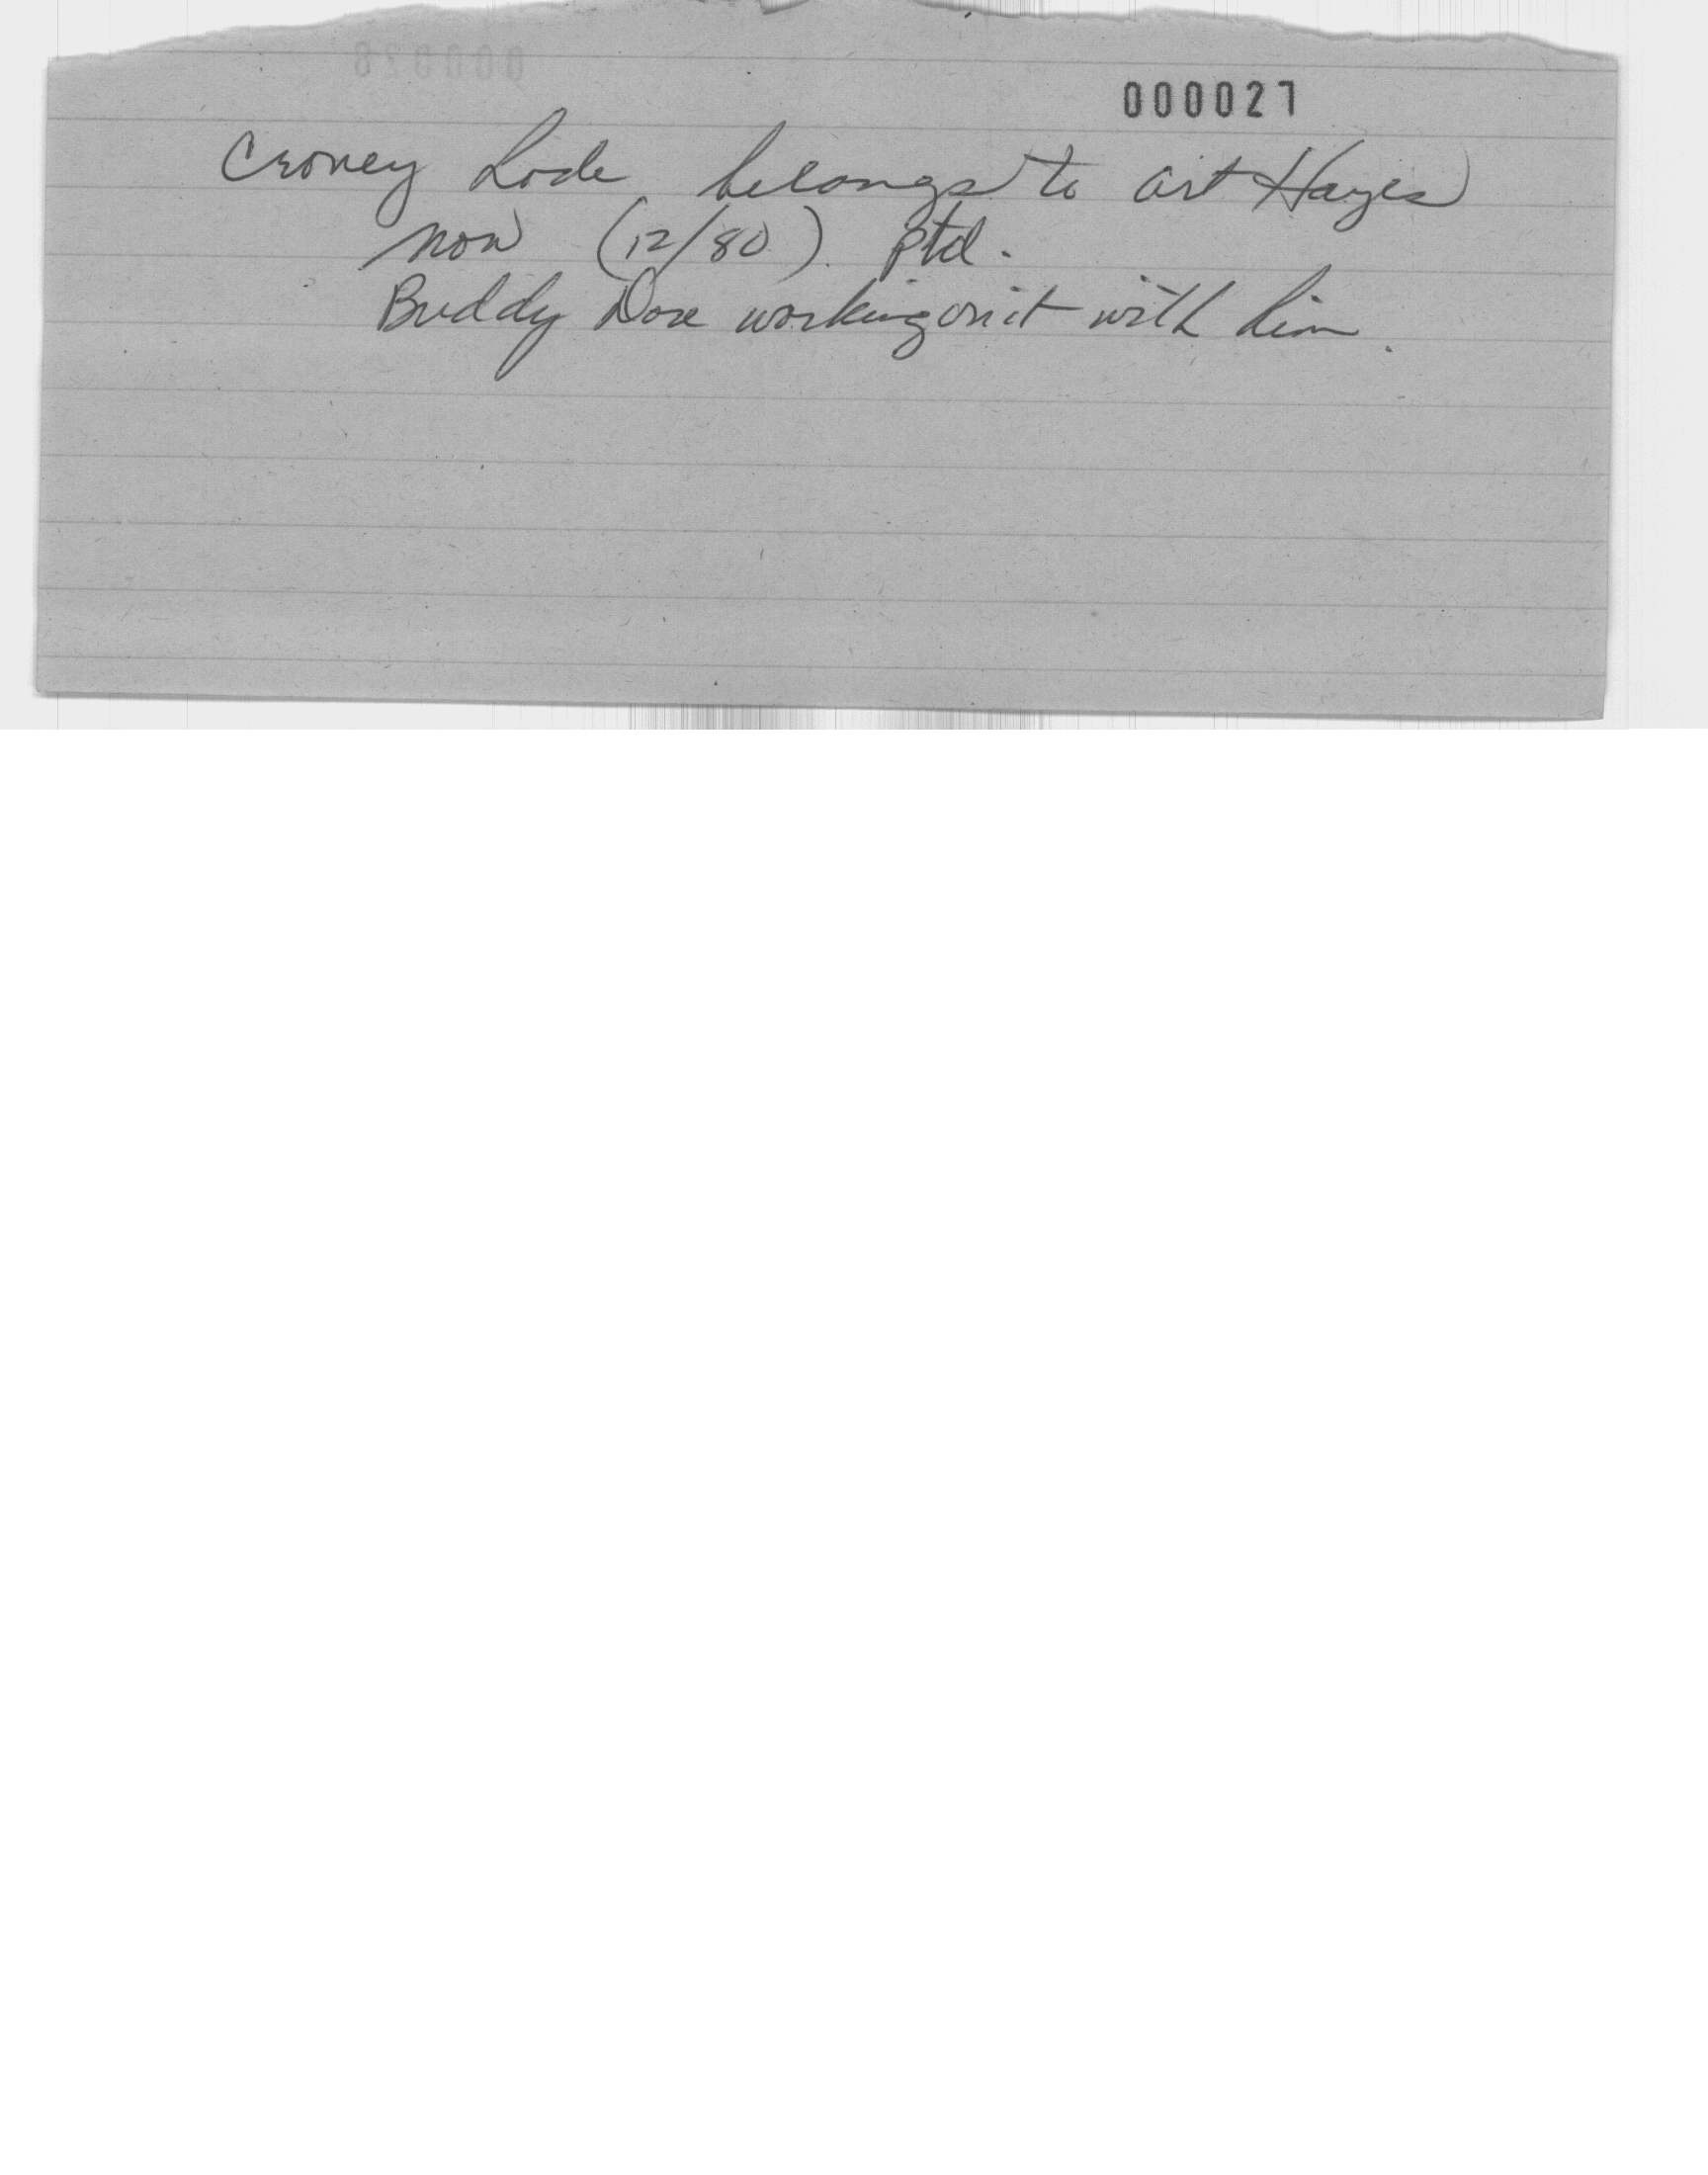 000027
Croney Lode belongs to Art Hayes
now (12/80). Ptd.
Buddy working on it with him.